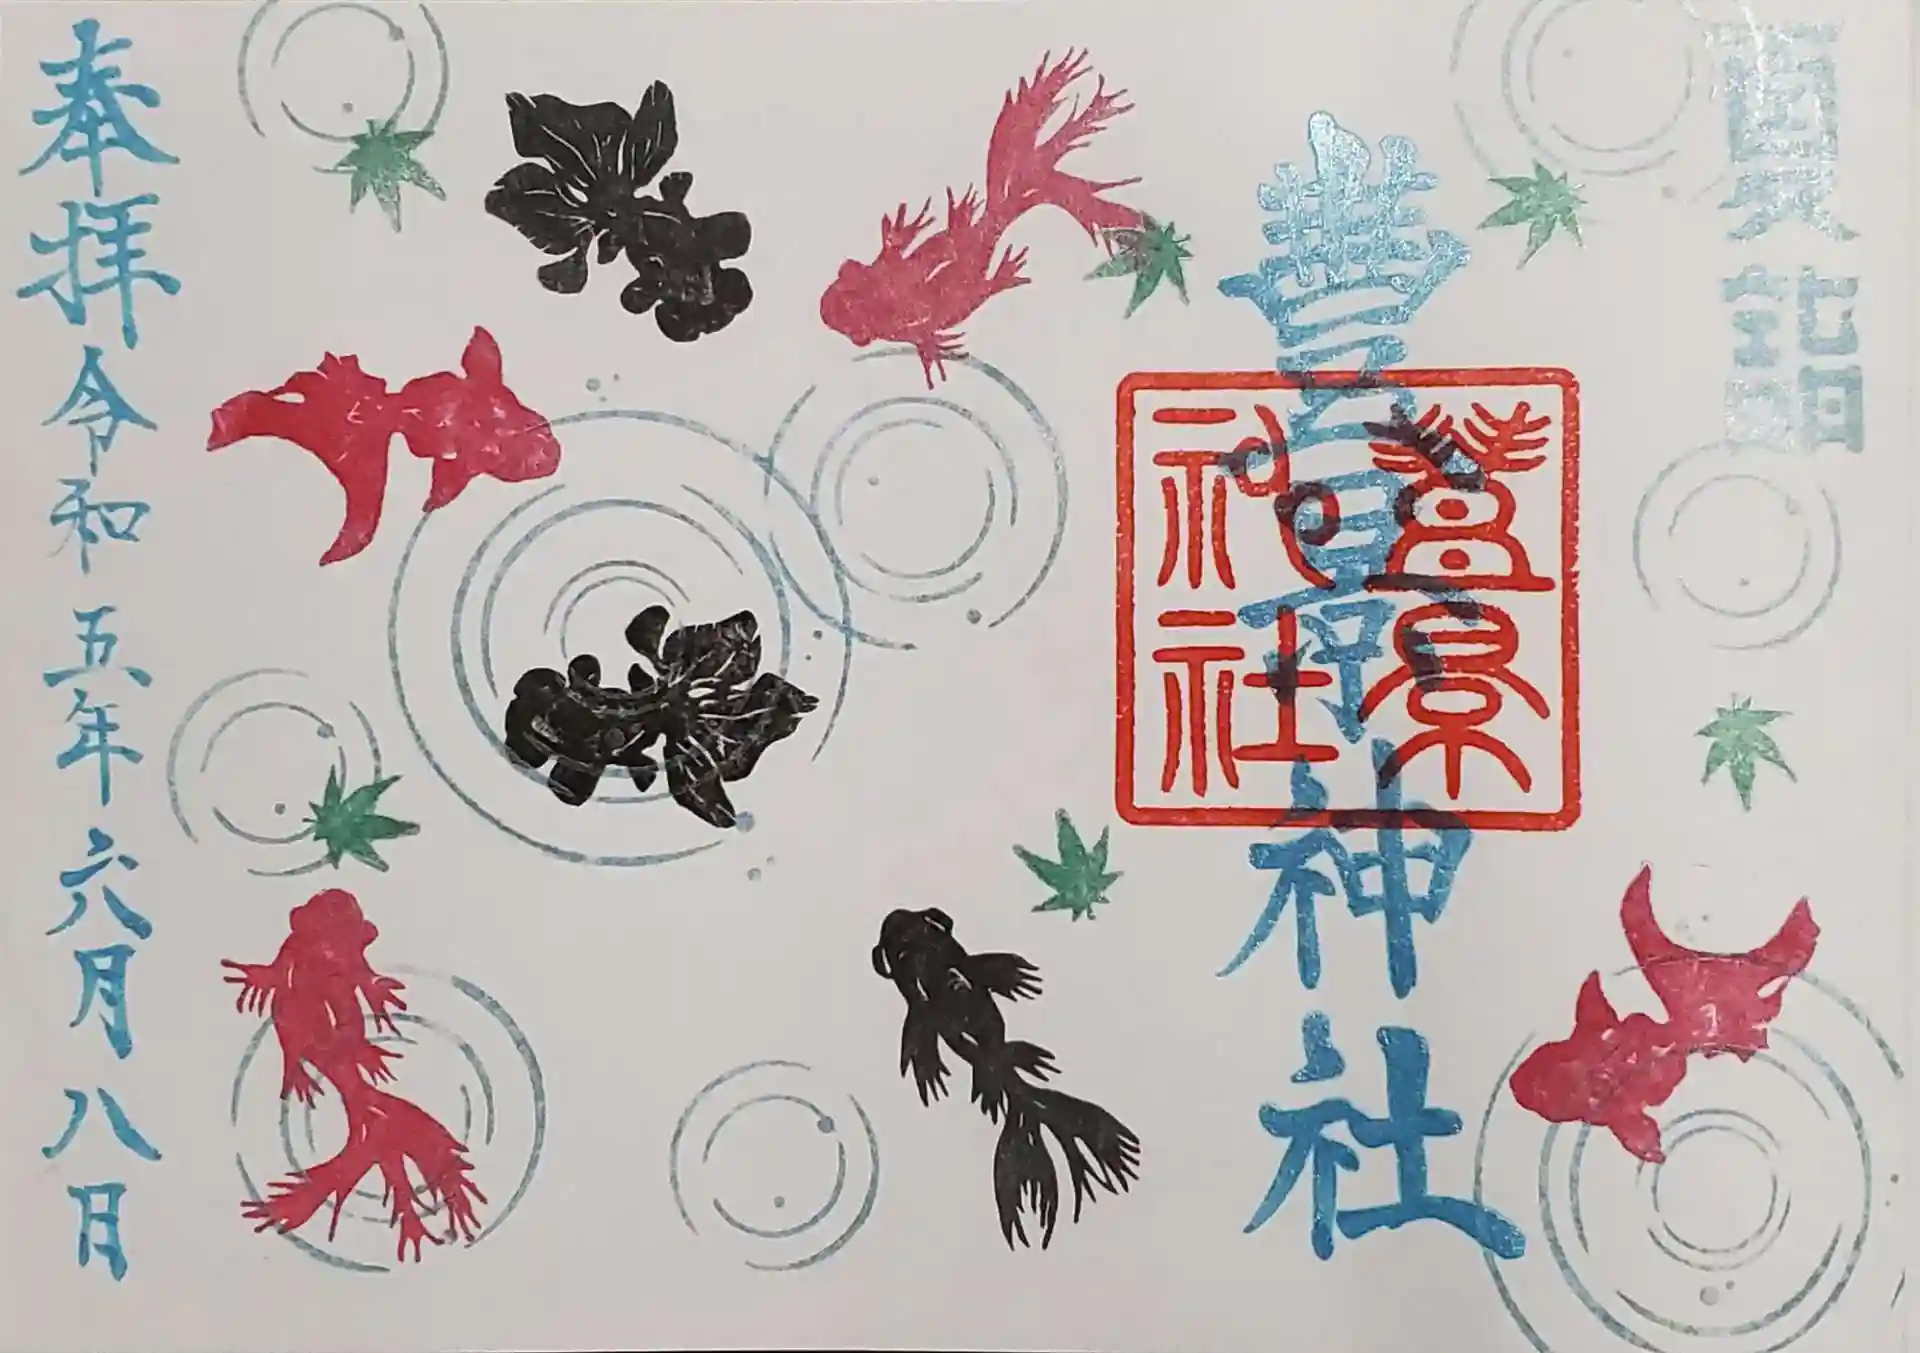 夏詣
豊景神社
豊景神社
奉拝 令和五年六月八日